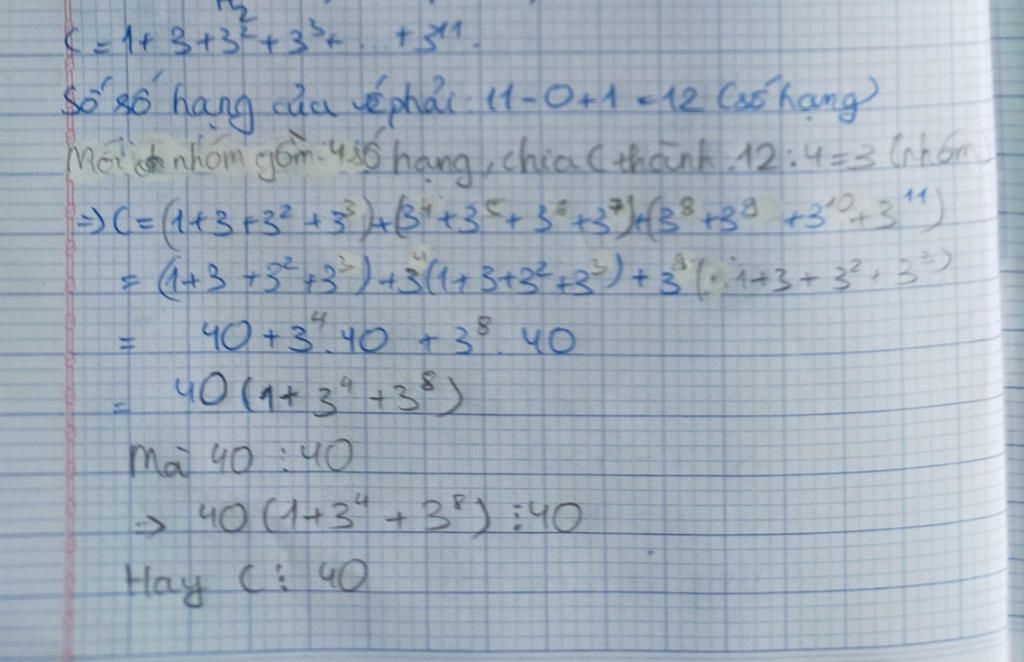 C = 1 + 3 + 3² + 3³ + ... + 3¹¹.
Số số hạng của vế phải: 11 - 0 + 1 = 12 (số hạng)
Mỗi nhóm gồm 4 số hạng, chia C thành 12 : 4 = 3 (nhóm
=> C = (1 + 3 + 3² + 3³) + (3⁴ + 3⁵ + 3⁶ + 3⁷) + (3⁸ + 3⁹ + 3¹⁰ + 3¹¹)
= (1 + 3 + 3² + 3³) + 3⁴(1 + 3 + 3² + 3³) + 3⁸(1 + 3 + 3² + 3³)
= 40 + 3⁴.40 + 3⁸.40
= 40(1 + 3⁴ + 3⁸)
Mà 40 ⋮ 40
=> 40(1 + 3⁴ + 3⁸) ⋮ 40
Hay C ⋮ 40